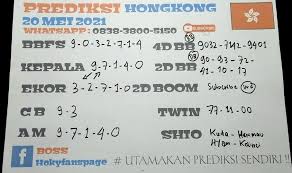 PREDIKSI HONGKONG
20 MEI 2021
WHATSAPP: 0838-3800-5150
SUBSCRIBE
BBFS 9-0-3-2-7-1-4
4D BB 9032-7142-9401
KEPALA 9-7-1-4-0
2D BB 90-93-72-
41-70-17
EKOR 3-2-7-1-0
2D BOOM Subscribe
CB 9-3
TWIN 77-11-00
AM 9-7-1-4-0
SHIO Kuda-
BOSS
Hokyfanspage
# UTAMAKAN PREDIKSI SENDIRI !!